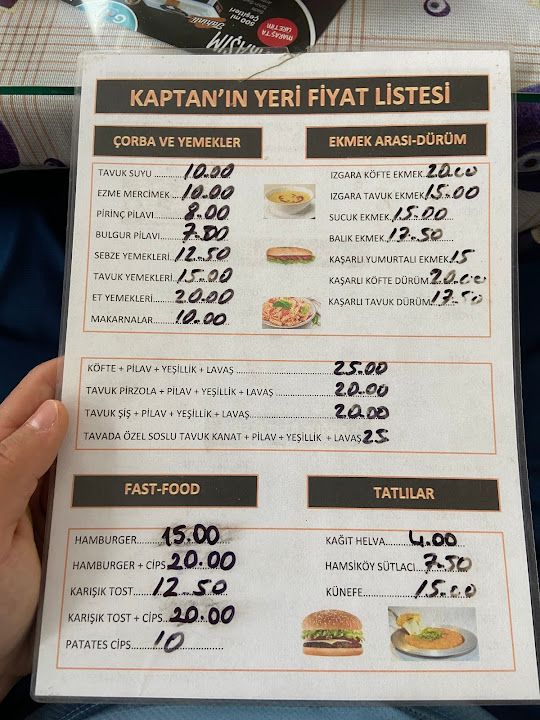 500 ml
MARAŞTA
ÜRETİM
KAPTAN'IN YERİ FİYAT LİSTESİ
ÇORBA VE YEMEKLER
TAVUK SUYU 10.00
EZME MERCİMEK 10.00
PİRİNÇ PİLAVI 8.00
BULGUR PİLAVI 7.50
SEBZE YEMEKLERİ 12.50
TAVUK YEMEKLERİ 15.00
ET YEMEKLERİ 20.00
MAKARNALAR 10.00
EKMEK ARASI-DÜRÜM
IZGARA KÖFTE EKMEK 20.00
IZGARA TAVUK EKMEK 15.00
SUCUK EKMEK 15.00
BALIK EKMEK 17.50
KAŞARLI YUMURTALI EKMEK 15
KAŞARLI KÖFTE DÜRÜM 20.00
KAŞARLI TAVUK DÜRÜM 17.50
KÖFTE + PİLAV + YEŞİLLİK + LAVAŞ 25.00
TAVUK PİRZOLA + PİLAV + YEŞİLLİK + LAVAŞ 20.00
TAVUK ŞİŞ + PİLAV + YEŞİLLİK + LAVAŞ 20.00
TAVADA ÖZEL SOSLU TAVUK KANAT + PİLAV + YEŞİLLİK + LAVAŞ 25
FAST-FOOD
HAMBURGER 15.00
HAMBURGER + CİPS 20.00
KARIŞIK TOST 12.50
KARIŞIK TOST + CİPS 20.00
PATATES CİPS 10
TATLILAR
KAĞIT HELVA 4.00
HAMSİKÖY SÜTLACI 7.50
KÜNEFE 15.00